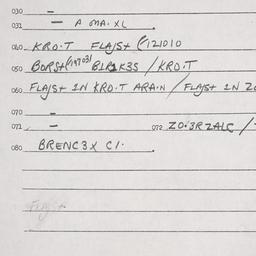 030 –
031 – A MA. XL
040 KRO.T FLAJST (121010
050 BORST(19703) BLR1K3S / KRO.T
060 FLAJST 1N KRO.T ARA.N / FLAJST 1N
070 –
071 – 072 ZO.3R ZALC /
080 BRENC3X C1.